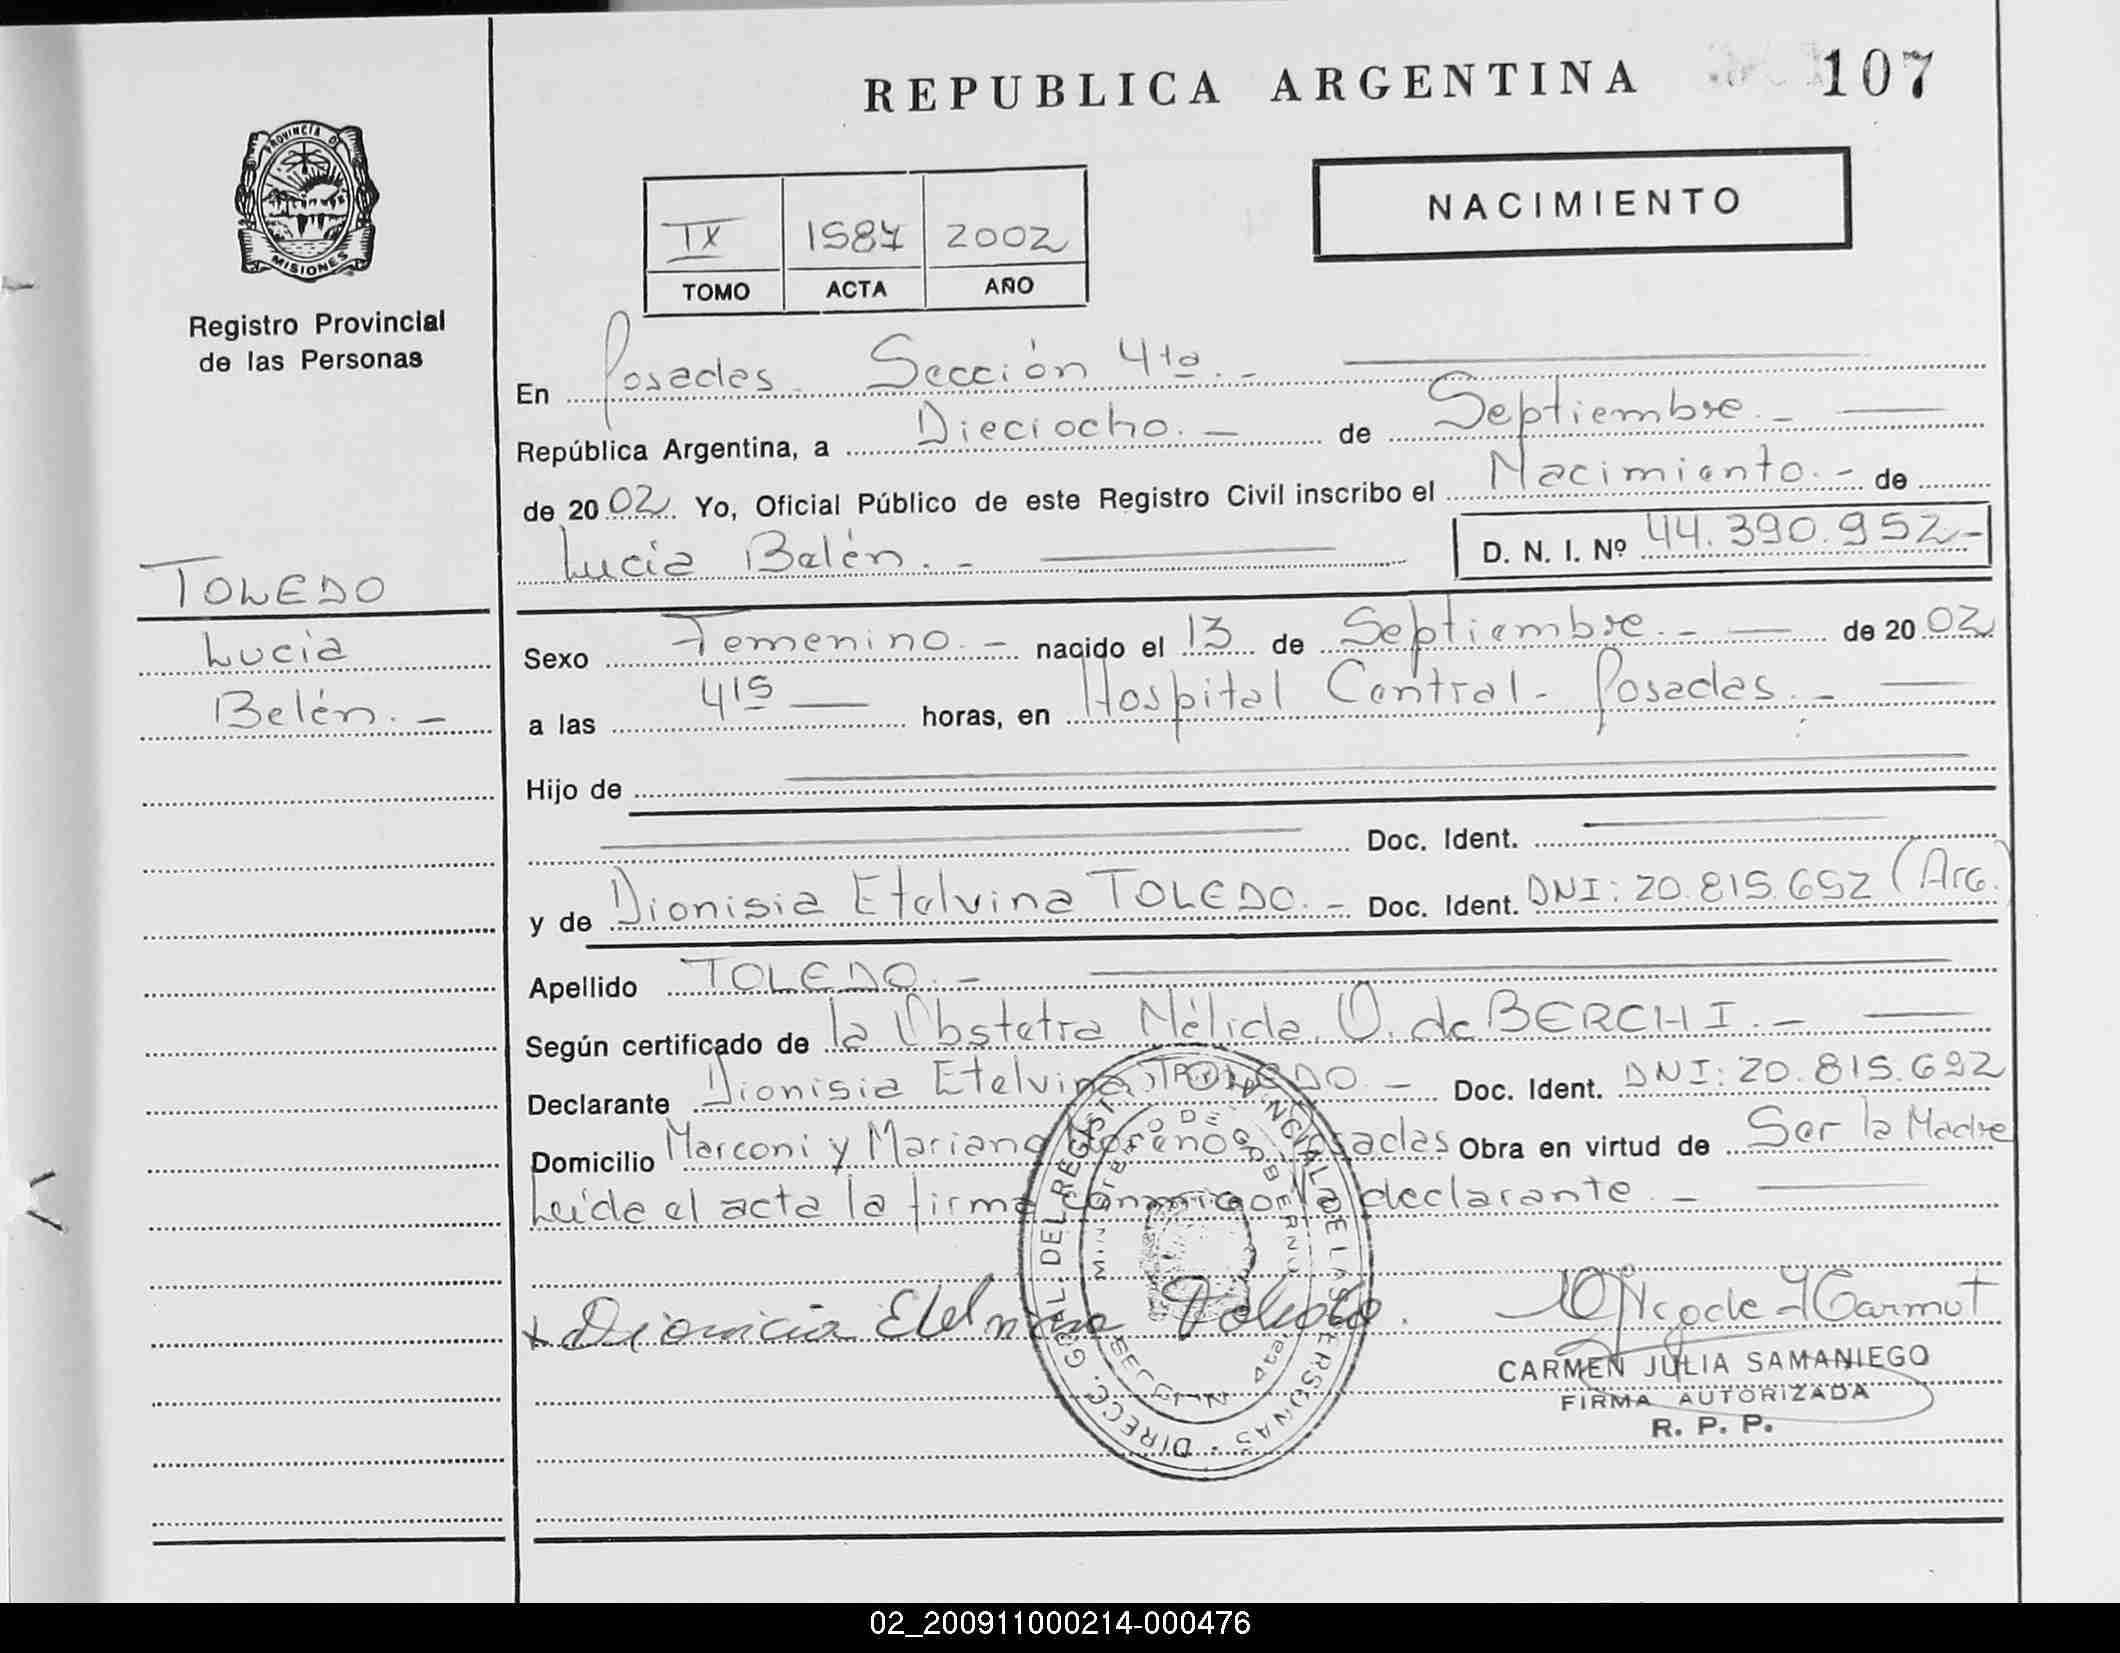 REPUBLICA ARGENTINA 107
PROVINCIA DE
MISIONES
Registro Provincial
de las Personas
NACIMIENTO
IX 1587 2002
TOMO ACTA AÑO
En Posadas. Sección 4ta.-
República Argentina, a Dieciocho.- de Septiembre.-
de 2002. Yo, Oficial Público de este Registro Civil inscribo el Nacimiento.- de
Lucia Belén.- D. N. I. Nº 44.390.952-
TOLEDO
Lucia
Belén.-
Sexo Femenino.- nacido el 13 de Septiembre.- de 2002
a las 4 15 horas, en Hospital Central- Posadas.-
Hijo de
Doc. Ident.
y de Dionisia Etelvina TOLEDO.- Doc. Ident. DNI: 20.815.692 (Arg.
Apellido TOLEDO.-
Según certificado de la Obstetra Nélida O. de BERCHI.-
Declarante Dionisia Etelvina TOLEDO.- Doc. Ident. DNI: 20.815.692
Domicilio Marconi y Mariano Moreno Posadas Obra en virtud de Ser la Madre
Leída el acta la firma conmigo la declarante.-
DIRECC. GRAL. DEL REGISTRO PROVINCIAL DE LAS PERSONAS
MINISTERIO DE GOBIERNO
x Dionicia Etelvina Toledo.
CARMEN JULIA SAMANIEGO
FIRMA AUTORIZADA
R. P. P.
02_200911000214-000476